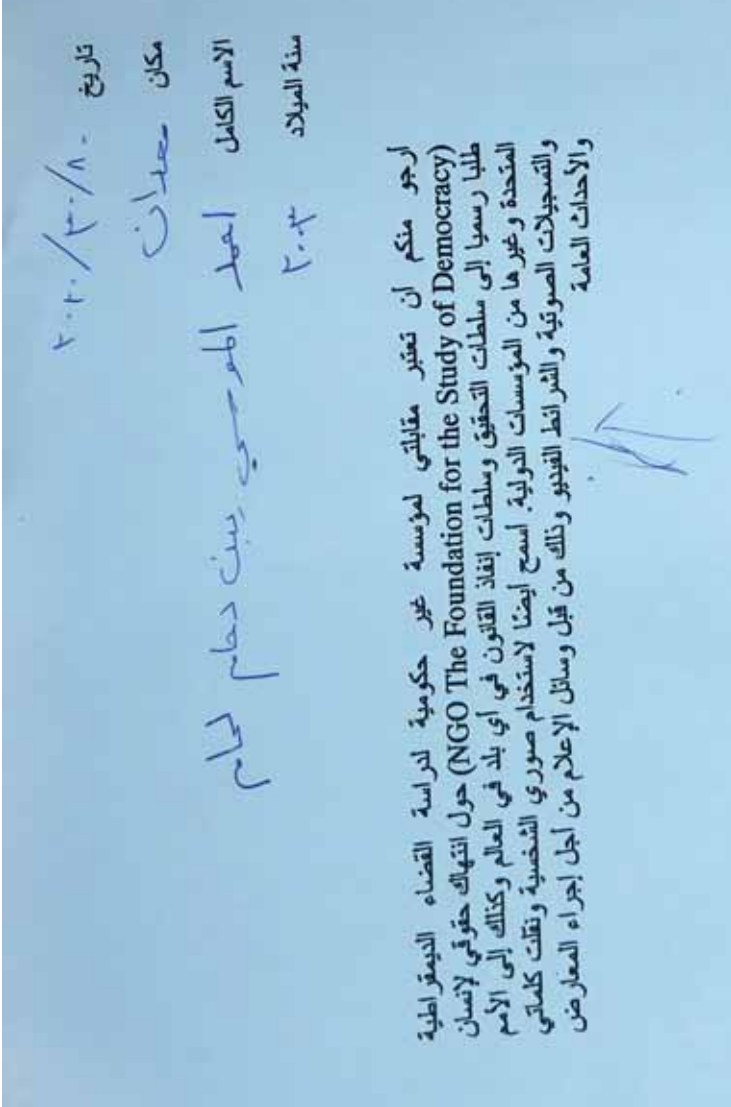 تاريخ
مكان معدان
الاسم الكامل احمد
سنة الميلاد ٢٠٠٣
أرجو منكم أن تعتبر مقابلتي لمؤسسة غير حكومية لدراسة القضاء الديمقراطية
(NGO The Foundation for the Study of Democracy) حول انتهاك حقوقي لإنسان
طلبا رسميا إلى سلطات التحقيق وسلطات إنفاذ القانون في أي بلد في العالم وكذلك إلى الأمم
المتحدة وغيرها من المؤسسات الدولية. اسمح ايضنا لاستخدام صوري الشخصية ونقلت كلماتي
والتسجيلات الصوتية والشرائط الفيديو وذلك من قبل وسائل الإعلام من أجل إجراء المعارض
والأحداث العامة